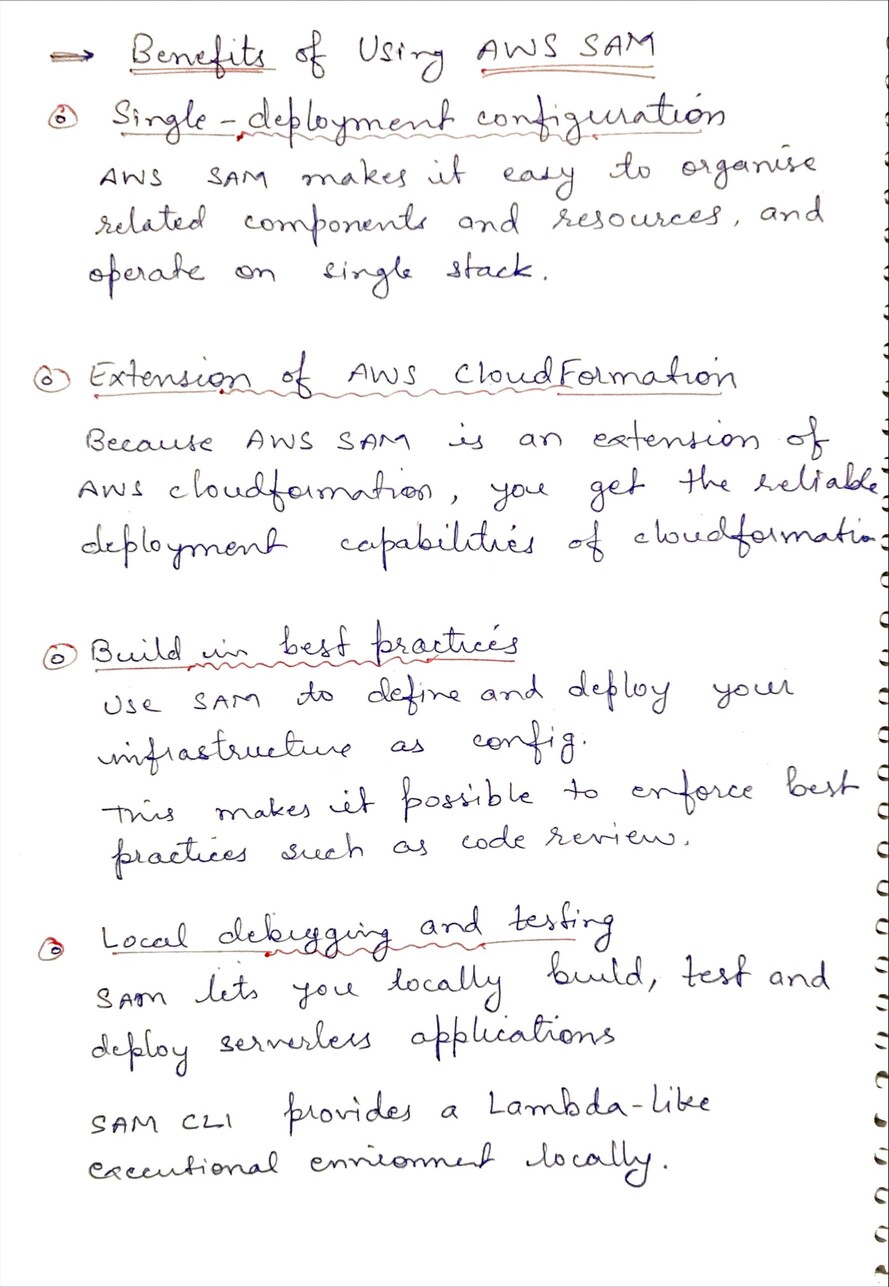 → Benefits of Using AWS SAM
Single-deployment configuration
AWS SAM makes it easy to organise
related components and resources, and
operate on single stack.
Extension of AWS CloudFormation
Because AWS SAM is an extension of
AWS cloudformation, you get the reliable
deployment capabilities of cloudformatio
Build in best practices
Use SAM to define and deploy your
infrastructure as config.
This makes it possible to enforce best
practices such as code review.
Local debugging and testing
SAM lets you locally build, test and
deploy serverless applications
SAM CLI provides a Lambda-like
executional environment locally.